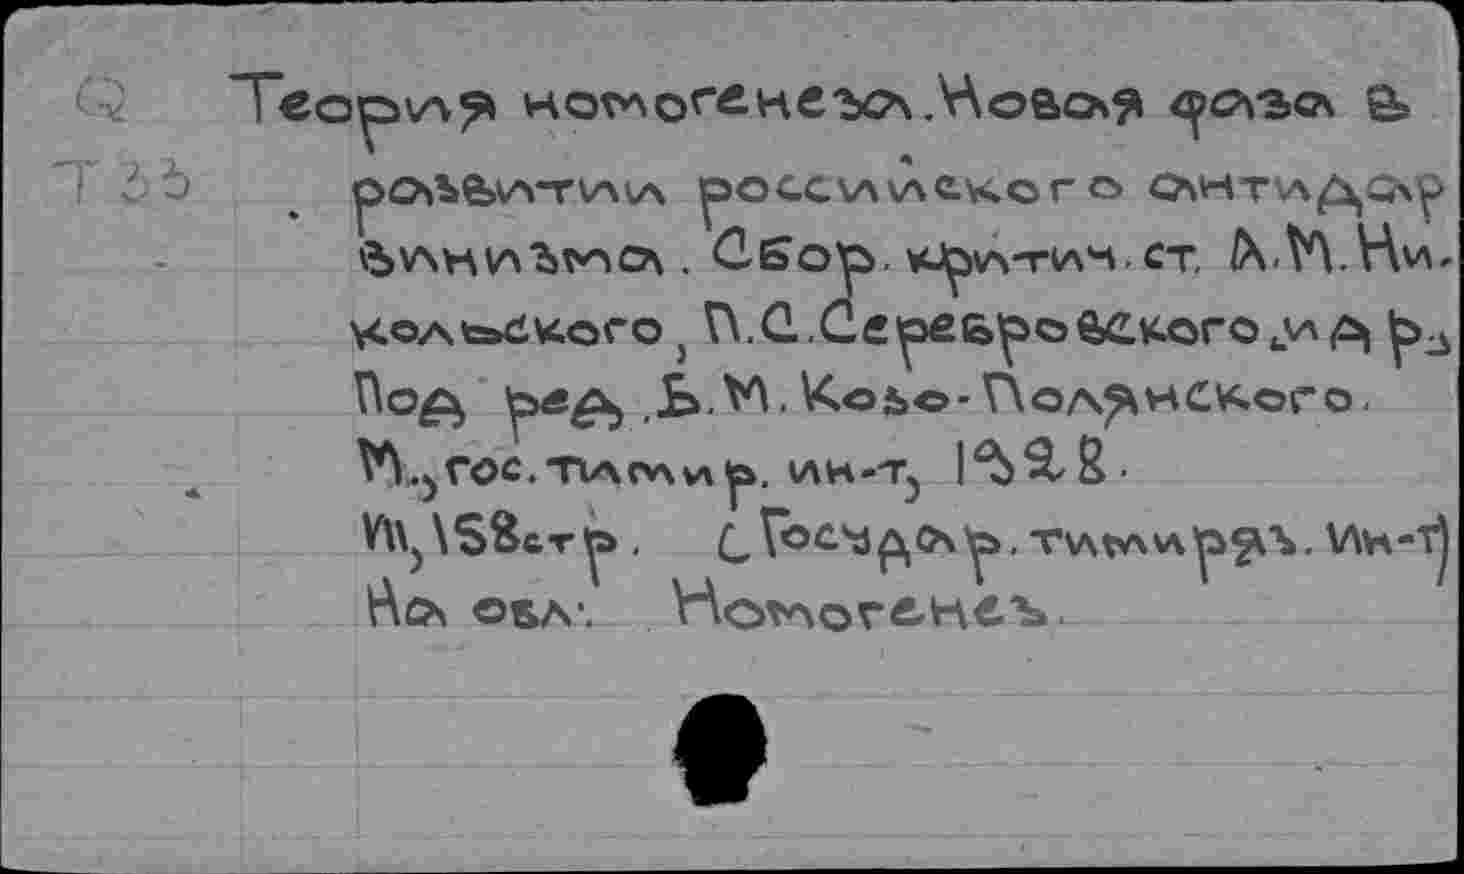 Q Теория номогенеза. Новая фаза в
Т33 развитии российского антидар
винизма. Сбор. критич. ст. А.М. Ни-
кольского, П.С. Серебровского, и др.
Под ред. Б.М. Козо-Полянского.
М., гос. тимир. ин-т, 1928.
III, 158 стр. (Государ. тимиряз. Ин-т)
На обл.: Номогенез.